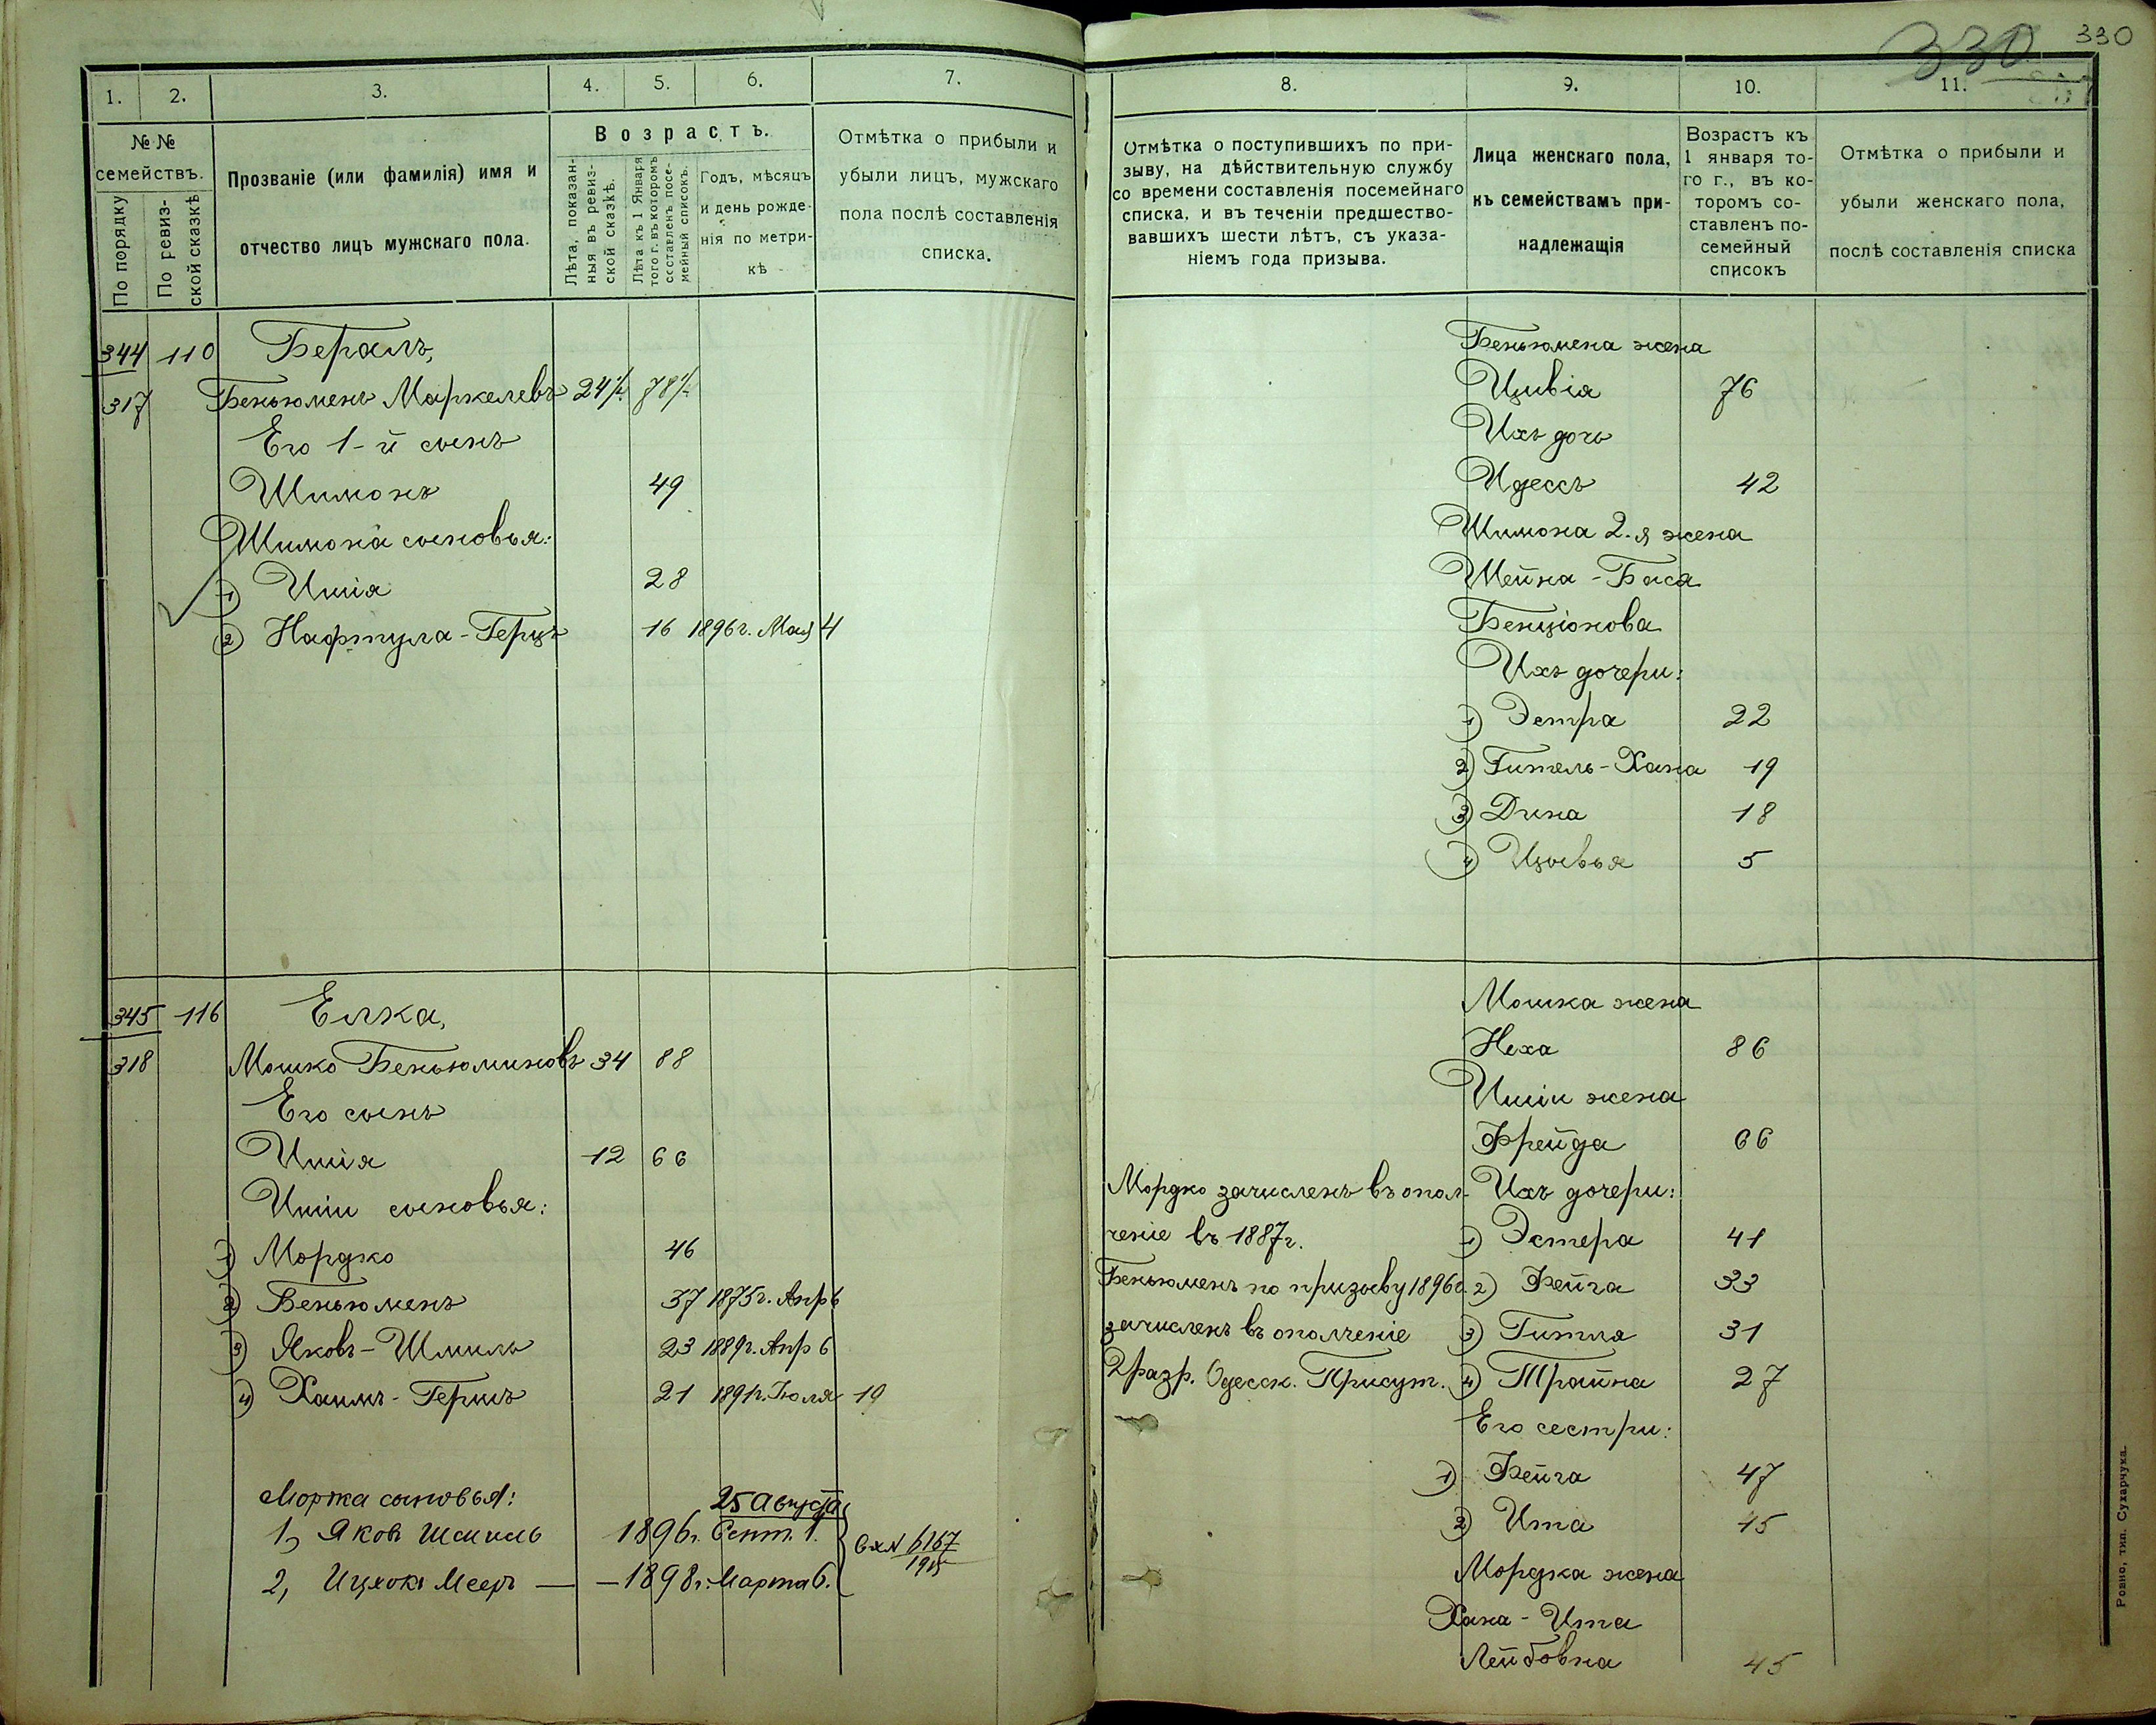 330
330
1.
2.
3.
4.
5.
6.
7.
№ №
семействъ.
По порядку
По ревиз-
ской сказкѣ
Прозваніе (или фамилія) имя и
отчество лицъ мужскаго пола.
Возрастъ.
Лѣта, показан-
ныя въ ревиз-
ской сказкѣ.
Лѣта къ 1 Января
того г. въ которомъ
составленъ посе-
мейный списокъ.
Годъ, мѣсяцъ
и день рожде-
нія по метри-
кѣ
Отмѣтка о прибыли и
убыли лицъ, мужскаго
пола послѣ составленія
списка.
344 110 Бералъ,
317 Беньюменъ Маркелевъ 24½ 78½
Его 1-й сынъ
Шимонъ 49
Шимона сыновья:
1) Ишія 28
2) Нафтула-Герцъ 16 1896г. Мая 4
345 116 Елка,
318 Мошко Беньюминовъ 34 88
Его сынъ
Ишія 12 66
Ишіи сыновья:
1) Мордко 46
2) Беньюменъ 37 1875г. Апр 6
3) Яковъ-Шмиль 23 1889г. Апр 6
4) Хаимъ-Гершъ 21 1891г. Іюля 19
Моржа сыновья:
25 Августа
1, Яковъ Шмиль 1896г. Сент. 1.
2, Ицхокъ Мееръ — — 1898г. Марта 6.
Вх№ 6167
8.
9.
10.
11.
Отмѣтка о поступившихъ по при-
зыву, на дѣйствительную службу
со времени составленія посемейнаго
списка, и въ теченіи предшество-
вавшихъ шести лѣтъ, съ указа-
ніемъ года призыва.
Лица женскаго пола,
къ семействамъ при-
надлежащія
Возрастъ къ
1 января то-
го г., въ ко-
торомъ со-
ставленъ по-
семейный
списокъ
Отмѣтка о прибыли и
убыли женскаго пола,
послѣ составленія списка
Беньюмена жена
Цивія 76
Ихъ дочь
Идессъ 42
Шимона 2-я жена
Шейна-Бася
Бенціонова
Ихъ дочери:
1) Эстра 22
2) Гитель-Хана 19
3) Дина 18
4) Цывья 5
Мошка жена
Неха 86
Ишіи жена
Фрейда 66
Мордко зачисленъ въ опол-
ченіе въ 1887г.
Беньюменъ по призыву 1896г.
зачисленъ въ ополченіе
2 разр. Одесск. Присут.
Ихъ дочери:
1) Эстера 41
2) Фейга 33
3) Гитля 31
4) Трайна 27
Его сестри:
1) Фейга 47
2) Ита 45
Мордка жена
Хана-Ита
Лейбовна 45
Ровно, тип. Сухарчука.